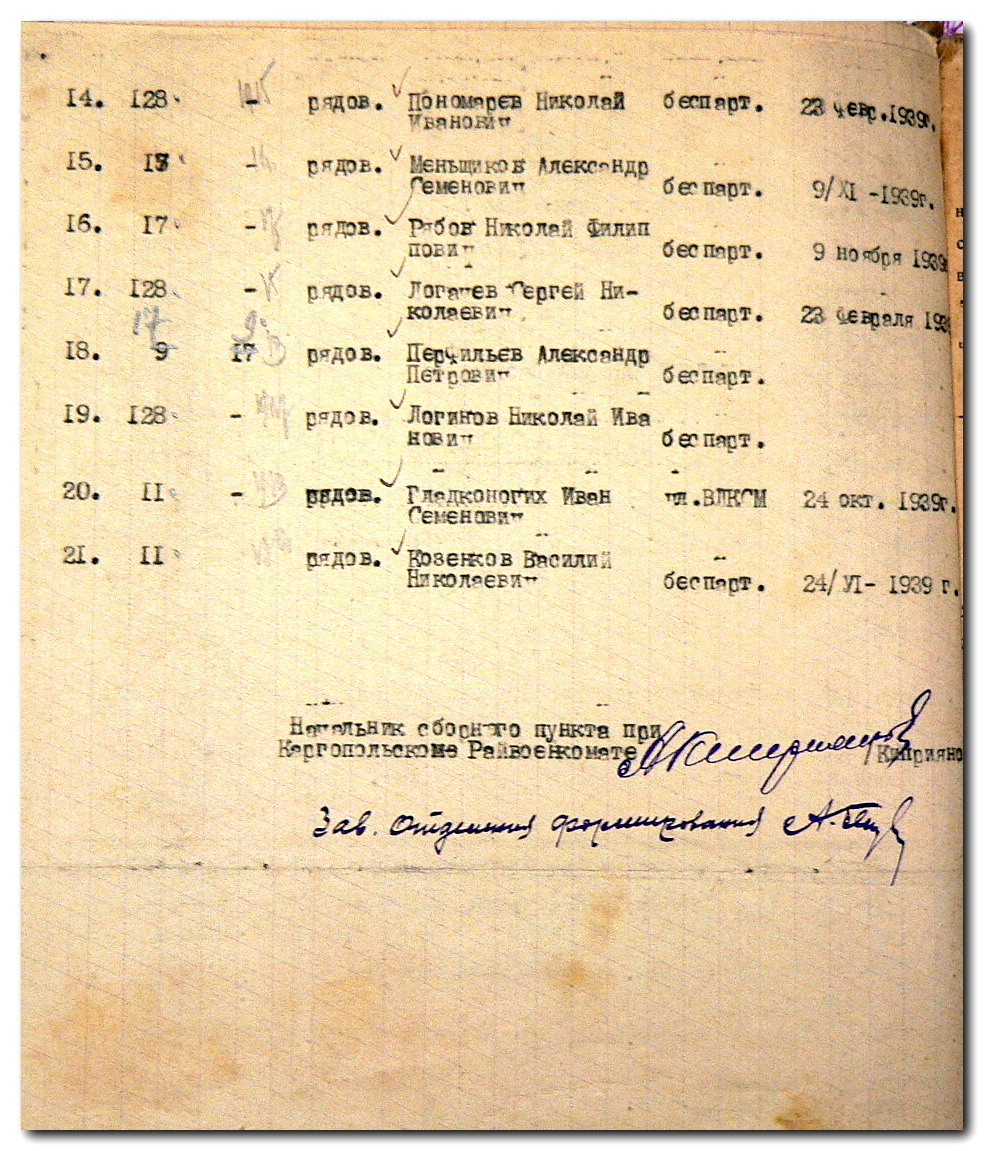 14. 128 - 1915 рядов. Пономарев Николай беспарт. 23 февр.1939г.
Иванович
15. - рядов. Меньщиков Александр
Семенович беспарт. 9/XI -1939г.
16. 17 - рядов. Рябов Николай Филип
пович беспарт. 9 ноября 1939
17. 128 - 15 рядов. Логачев Сергей Ни-
колаевич беспарт. 23 февраля 193
17
18. 9 17 рядов. Перфильев Александр
Петрович беспарт.
19. 128 - рядов. Логинов Николай Ива
нович беспарт.
20. II - рядов. Гладконогих Иван чл.ВЛКСМ 24 окт. 1939г.
Семенович
21. II рядов. Козенков Василий
Николаевич беспарт. 24/VI- 1939 г.
Начальник сборного пункта при
Каргопольском Райвоенкомате /Киприяно
Зав. Отделения формирования